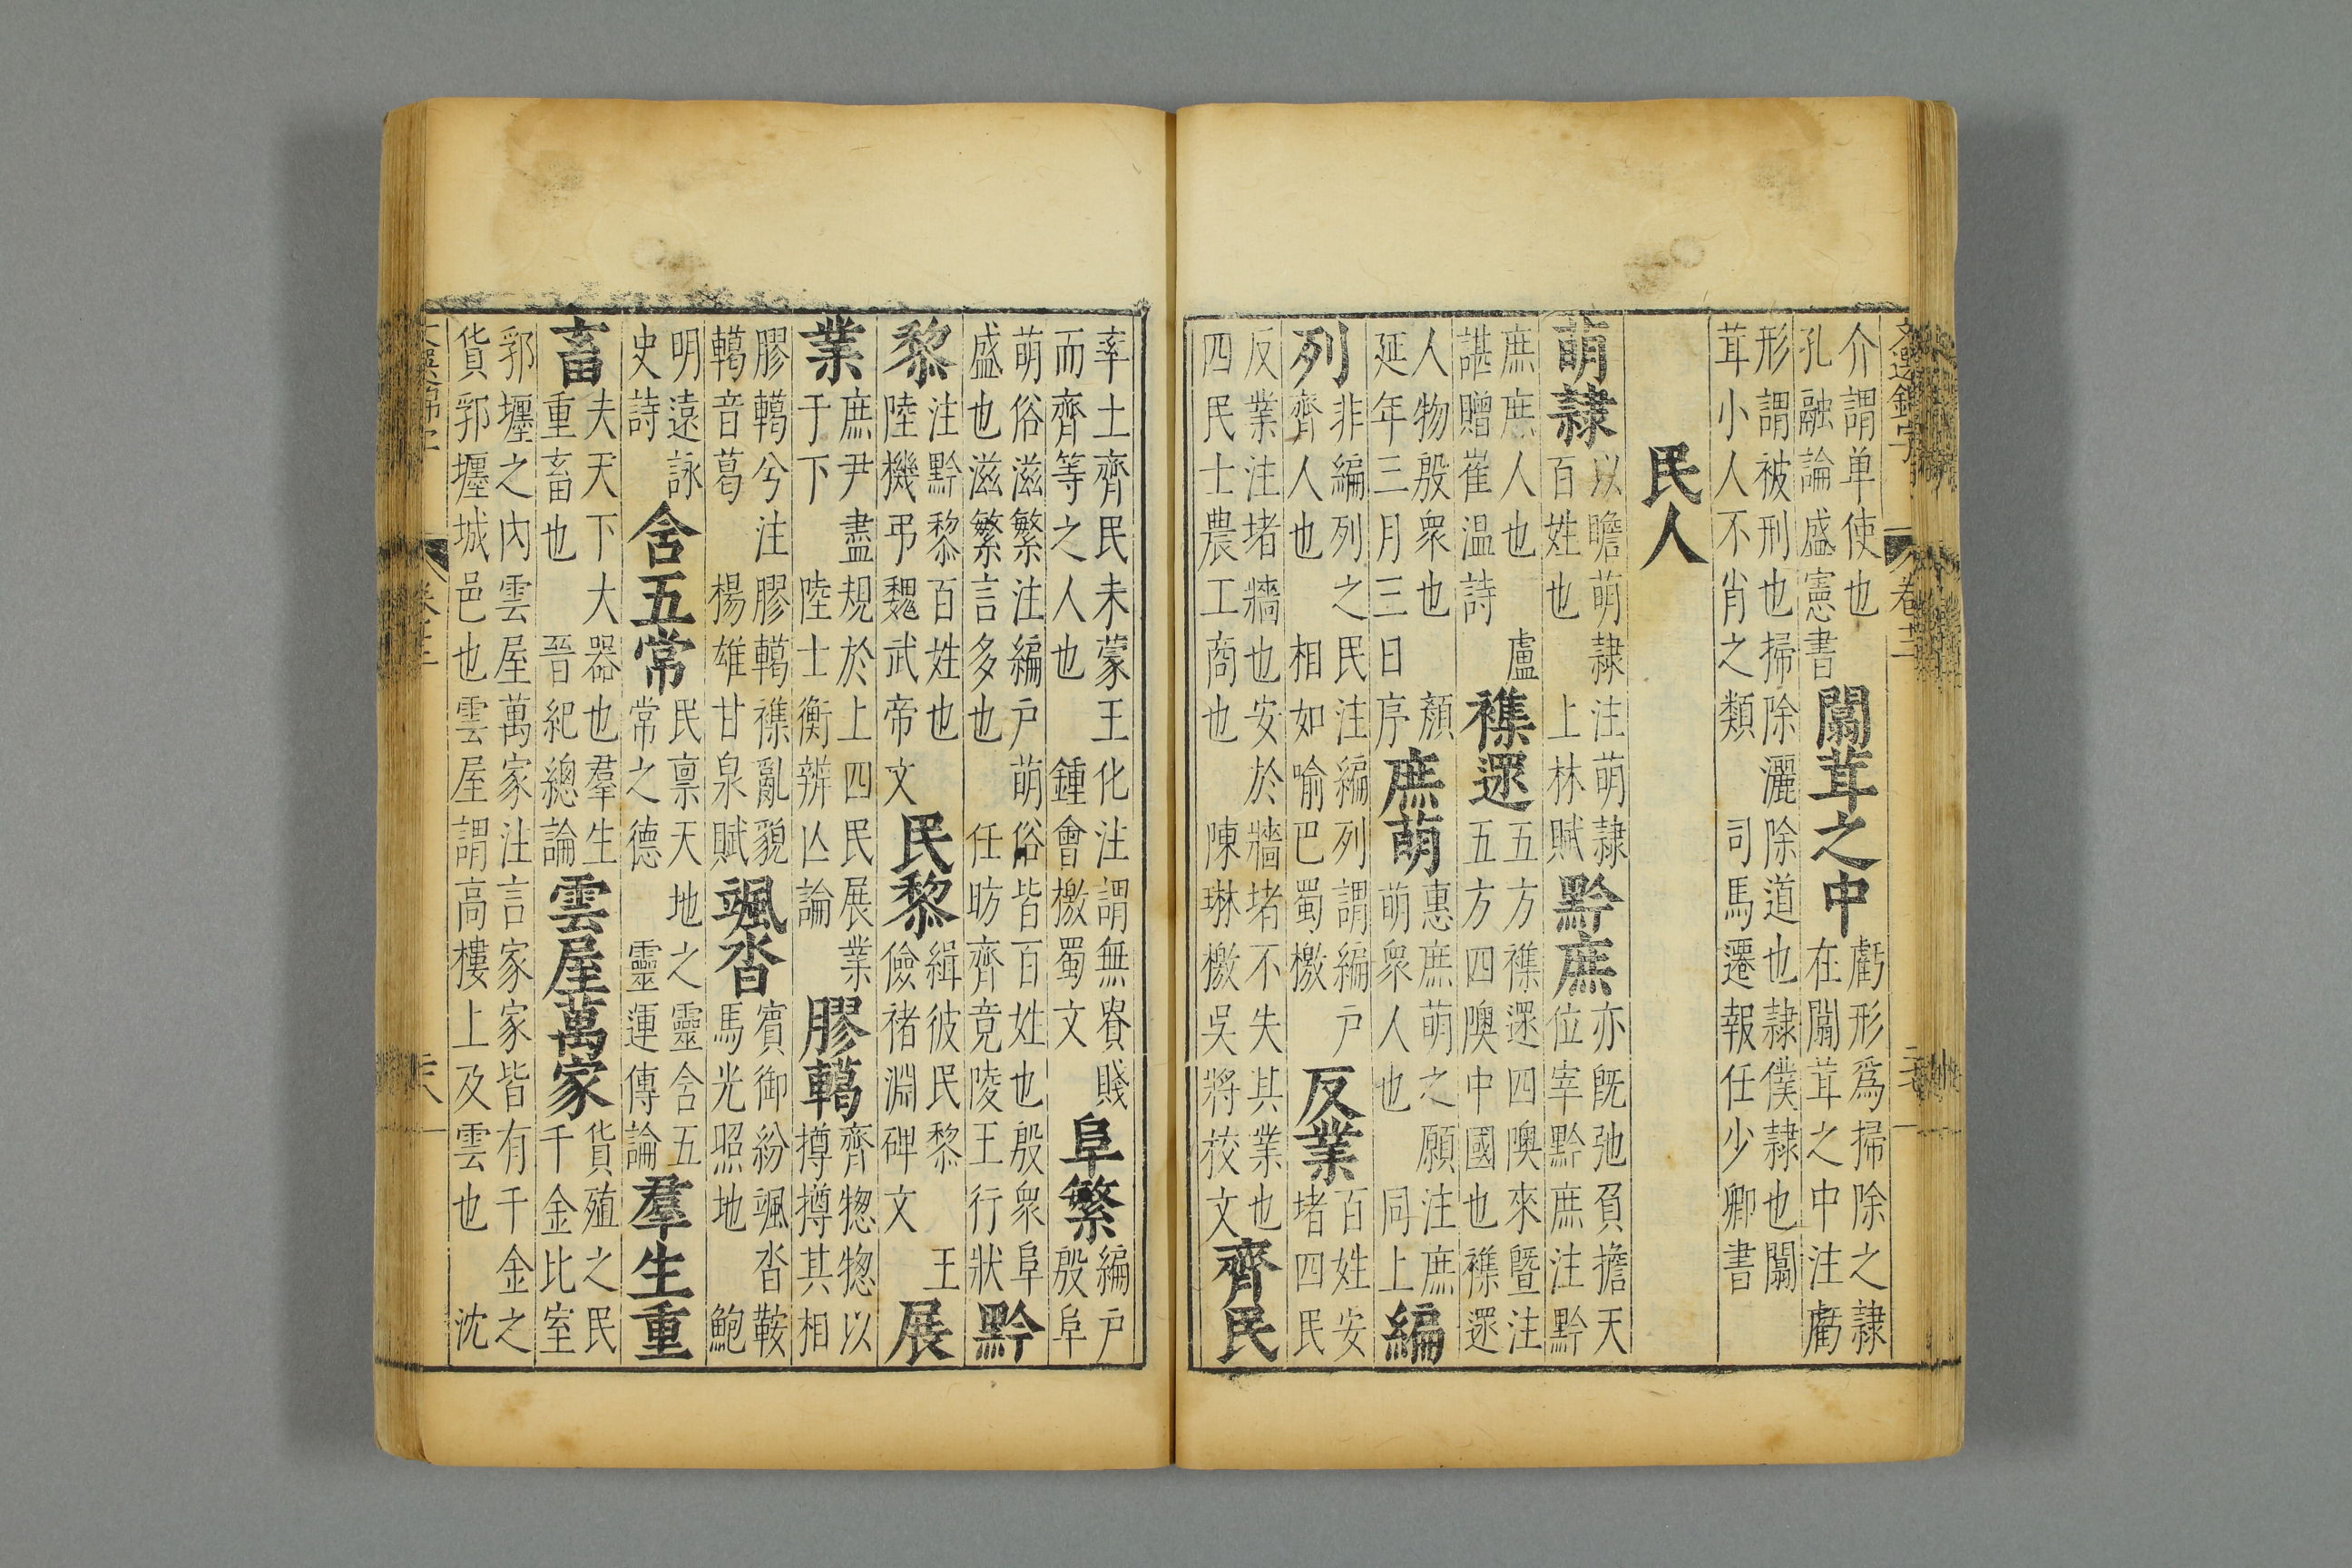 介謂单使也
孔融論盛憲書
闒茸之中
虧形爲掃除之隷
在闒茸之中注虧
形謂被刑也掃除灑除道也隷僕隷也闒
茸小人不肖之類 司馬遷報任少卿書
民人
萌隷
以瞻萌隷注萌隷
百姓也 上林賦
黔庶
亦既弛負擔天
位宰黔庶注黔
庶庶人也 盧
諶贈崔温詩
襍遝
五方襍遝四隩來暨注
五方四隩中國也襍遝
人物殷衆也 顔
延年三月三日序
庶萌
惠庶萌之願注庶
萌衆人也 同上
編
列
非編列之民注編列謂編戸
齊人也 相如喻巴蜀檄
反業
百姓安
堵四民
反業注堵牆也安於牆堵不失其業也
四民士農工商也 陳琳檄吳將校文
齊民
率土齊民未蒙王化注謂無貴賤
而齊等之人也 鍾會檄蜀文
阜繁
編戸
殷阜
萌俗滋繁注編戸萌俗皆百姓也殷衆阜
盛也滋繁言多也 任昉齊竟陵王行狀
黔
黎
注黔黎百姓也
陸機弔魏武帝文
民黎
緝彼民黎 王
儉褚淵碑文
展
業
庶尹盡規於上四民展業
于下 陸士衡辨亾論
膠轕
齊惣惣以
撙撙其相
膠轕兮注膠轕襍亂貌
轕音葛 楊雄甘泉賦
颯沓
賓御紛颯沓鞍
馬光照地 鮑
明遠詠
史詩
含五常
民禀天地之靈含五
常之德 靈運傳論
羣生重
畜
夫天下大器也羣生
重畜也 晉紀總論
雲屋萬家
貨殖之民
千金比室
郛壥之内雲屋萬家注言家家皆有千金之
貨郛壥城邑也雲屋謂高樓上及雲也 沈